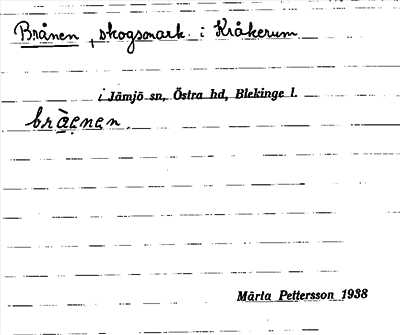 Brånen, skogsmark i Kråkerum
i Jämjö sn, Östra hd, Blekinge l.
bràẹnẹn.
Märta Pettersson 1938